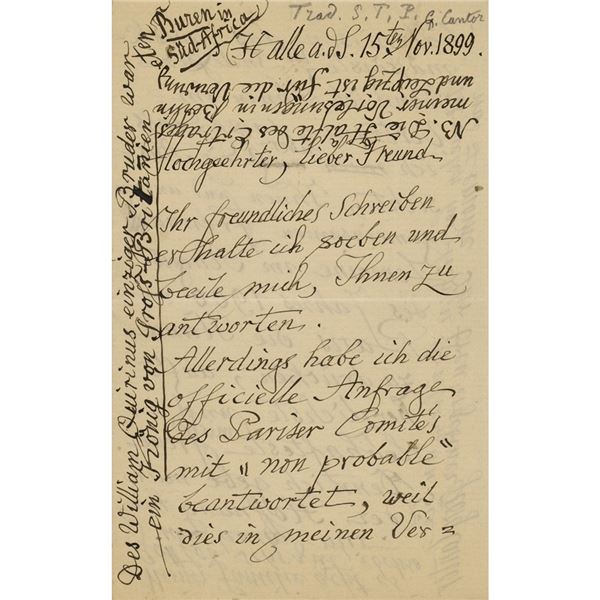 Trad. S. T. P. G. Cantor
Halle a. d. S. 15ten Nov. 1899.
Hochgeehrter, lieber Freund
Ihr freundliches Schreiben
erhalte ich soeben und
beeile mich, Ihnen zu
antworten.
Allerdings habe ich die
officielle Anfrage
des Pariser Comité's
mit „non probable"
beantwortet, weil
dies in meinen Ver=
NB. Die Hälfte des Ertrages
meiner Vorlesungen in Berlin
und Leipzig ist für die
Buren in
Süd-Africa
Des William Quirinus einziger Bruder war
ein König von Groß-Britannien